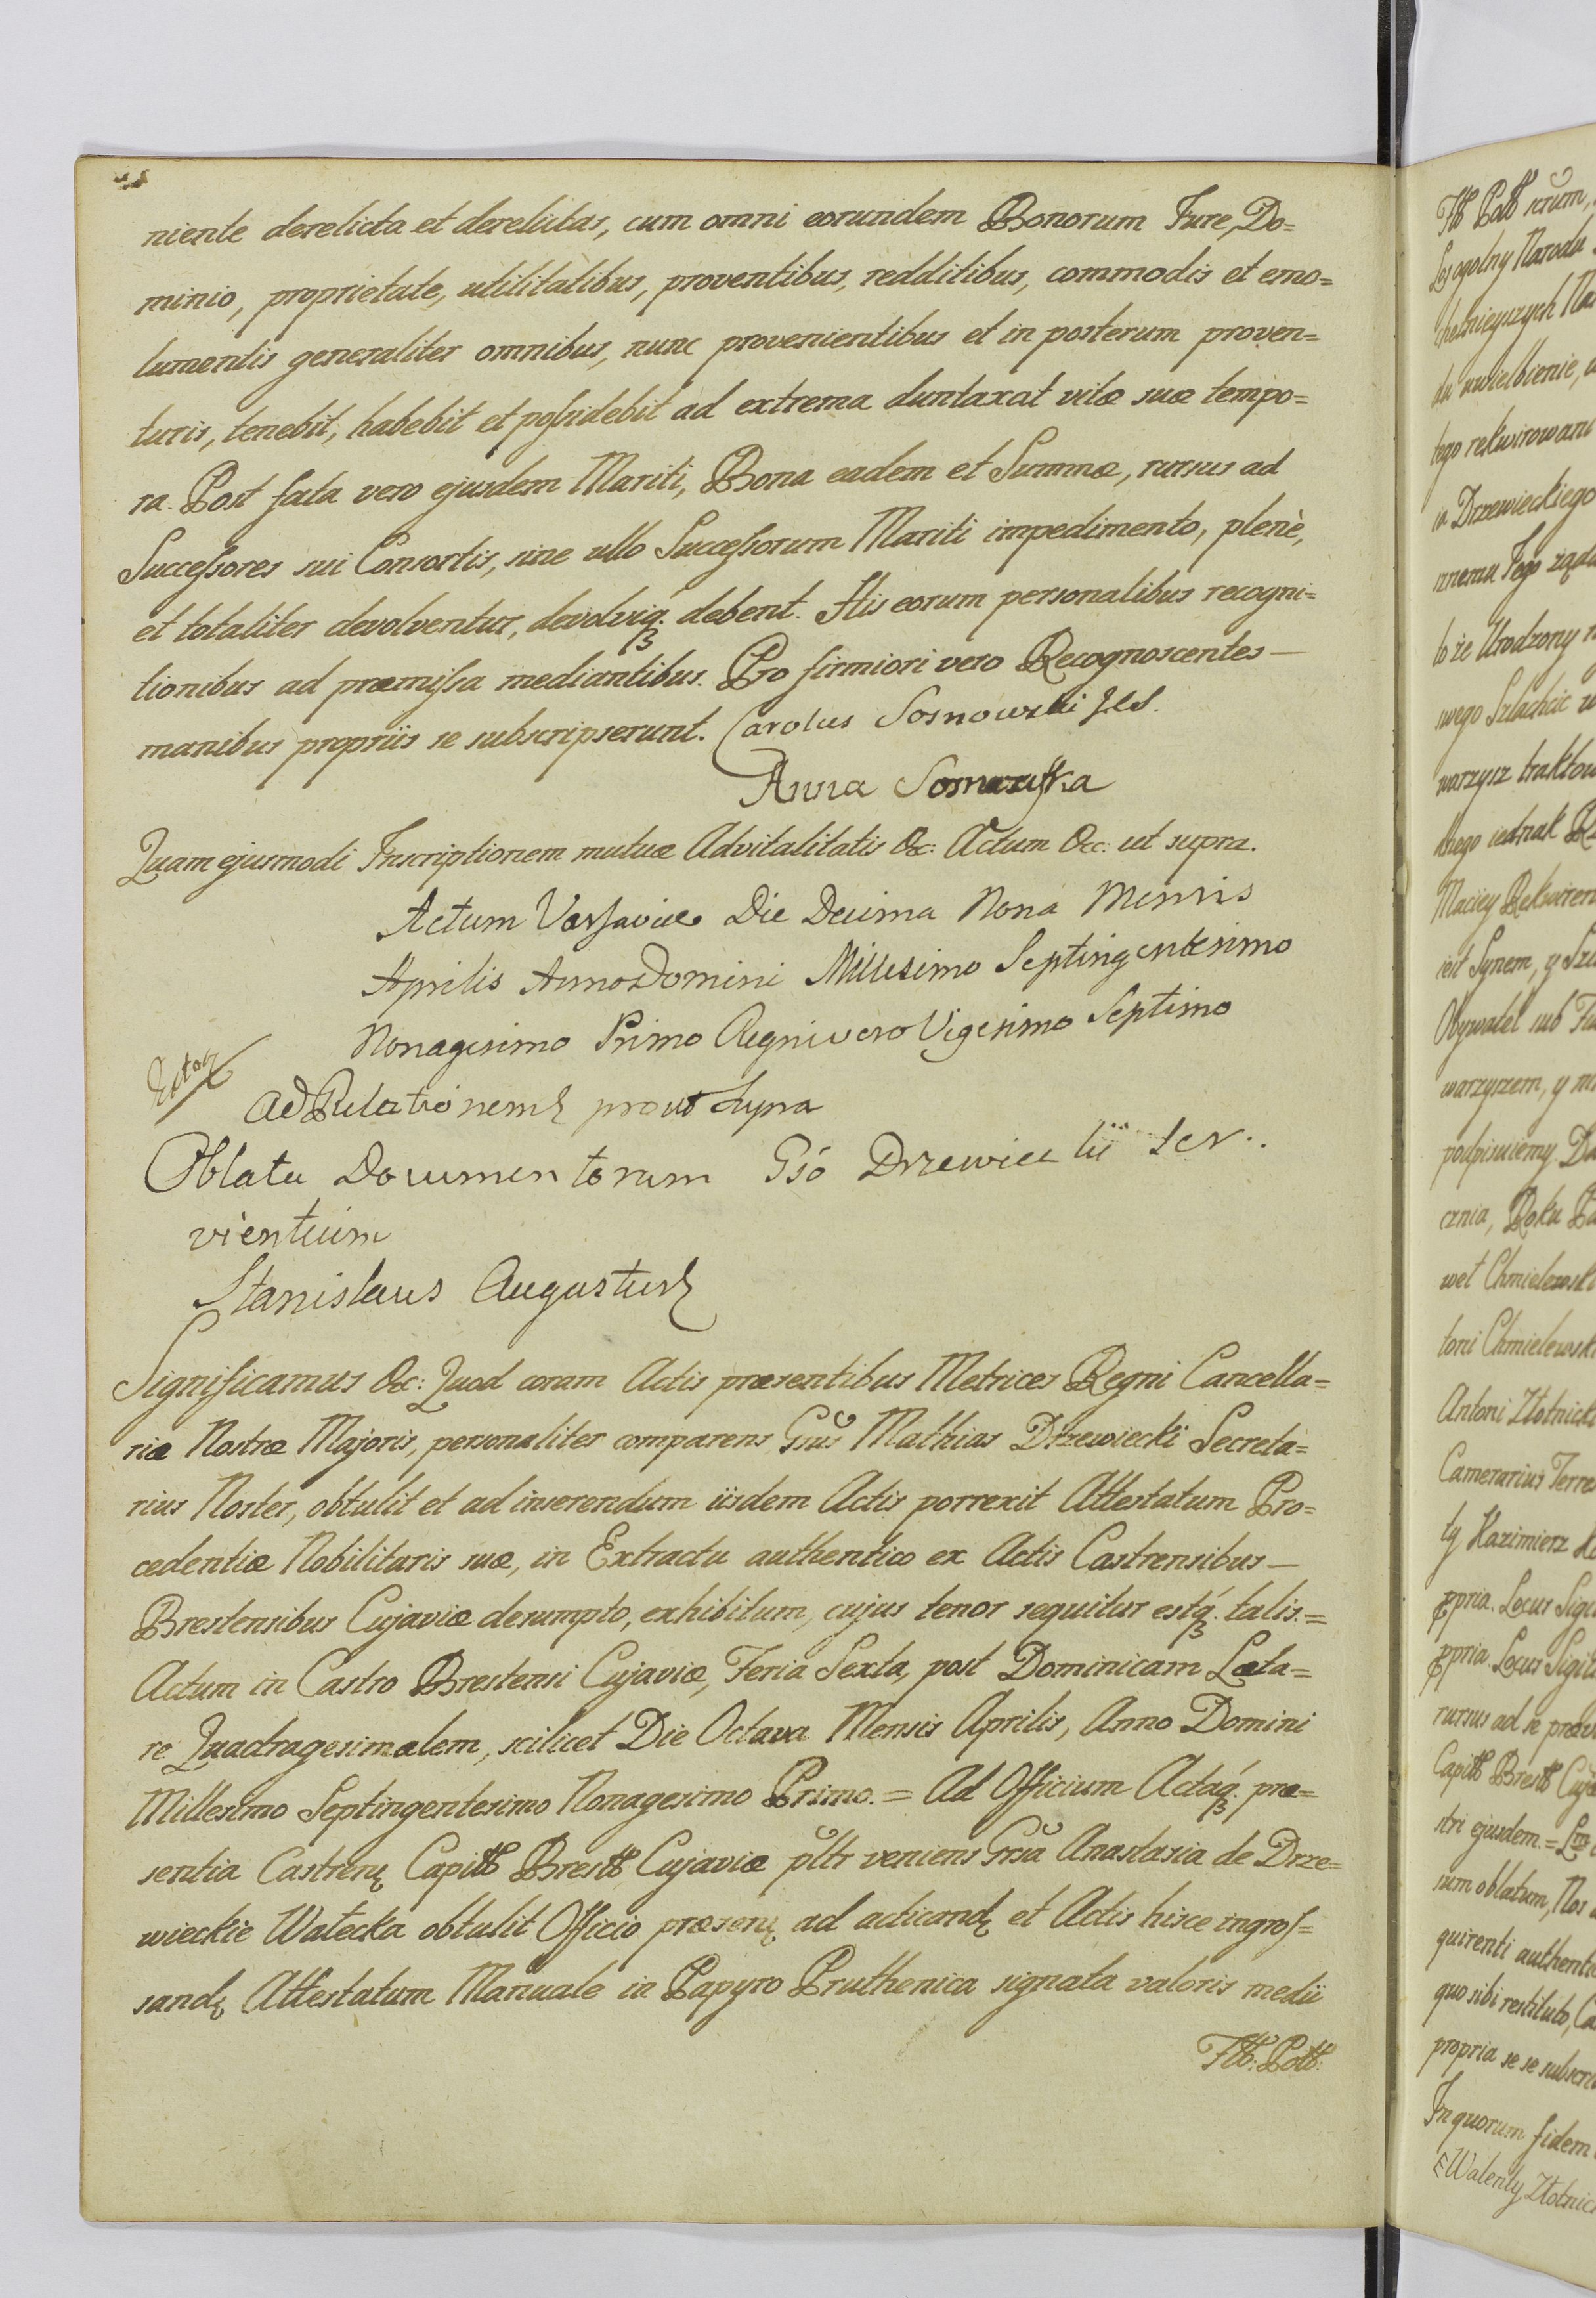 niente derelicta et derelictas, cum omni eorundem Bonorum Jure, Do=
minio, proprietate, utilitatibus, proventibus, redditibus, commodis et emo=
lumentis generaliter omnibus, nunc provenientibus et in posterum proven=
turis, tenebit, habebit et possidebit ad extrema duntaxat vitæ suæ tempo=
ra. Post fata vero ejusdem Mariti, Bona eadem et Summæ, rursus ad
Successores sui Consortis, sine ullo Successorum Mariti impedimento, plenè,
et totaliter devolventur, devolviq́ꝫ debent. His eorum personalibus recogni=
tionibus ad præmissa mediantibus. Pro firmiori vero Recognoscentes —
manibus propriis se subscripserunt. Carolus Sosnowski
Anna
Quam ejusmodi Inscriptionem mutuæ Advitalitatis &c: Actum &c: ut supra.
Actum Varsaviæ Die Decima Nona Mensis
Aprilis Anno Domini Millesimo Septingentesimo
Nonagesimo Primo Regni vero Vigesimo Septimo
Ad Relationem prout Supra
Oblata Documentorum Gso Drzewiecki ser
vientium
Stanislaus Augustus
Significamus &c: Quod coram Actis præsentibus Metrices Regni Cancella=
riæ Nostræ Majoris, personaliter comparens Gñus Mathias Drzewiecki Secreta=
rius Noster, obtulit et ad inserendum iisdem Actis porrexit Attestatum Pro=
cedentiæ Nobilitaris suæ, in Extractu authentico ex Actis Castrensibus —
Brestensibus Cujaviæ desumpto, exhibitum, cujus tenor sequitur estq́ꝫ talis. =
Actum in Castro Brestensi Cujaviæ, Feria Sexta, post Dominicam Læta=
re Quadragesimalem, scilicet Die Octava Mensis Aprilis, Anno Domini
Millesimo Septingentesimo Nonagesimo Primo. = Ad Officium Actaq́ꝫ præ=
sentia Castren: Capitt Brestt Cujaviæ pltr veniens Grsa Anastasia de Drze=
wieckie Wałecka obtulit Officio præsen: ad acticand: et Actis hisce ingros=
sand: Attestatum Manuale in Papyro Pruthenica signata valoris medii
Ftt: Pott:
Ftt Pott
Narodu
tego rekwirowani
ia Drzewieckiego
to że Urodzony
swego Szlachcic
warzysz traktow
iednak
Maciey Rekwiren
iest Synem, y Szl
Obywatel sub
warzyszem, y
podpisuiemy
cznia, Roku
wet Chmielewski
toni Chmielewski
Antoni Złotnicki
Camerarius Terres
ty Kazimierz
ppria. Locus Sigi
ppria. Locus Sigil
rursus ad se
Capitt Brestt Cuja
stri ejusdem. =
sum oblatum, Nos
quirenti authenti
quo sibi restituto,
propria se se subscri
In quorum fidem
Walenty Złotnic